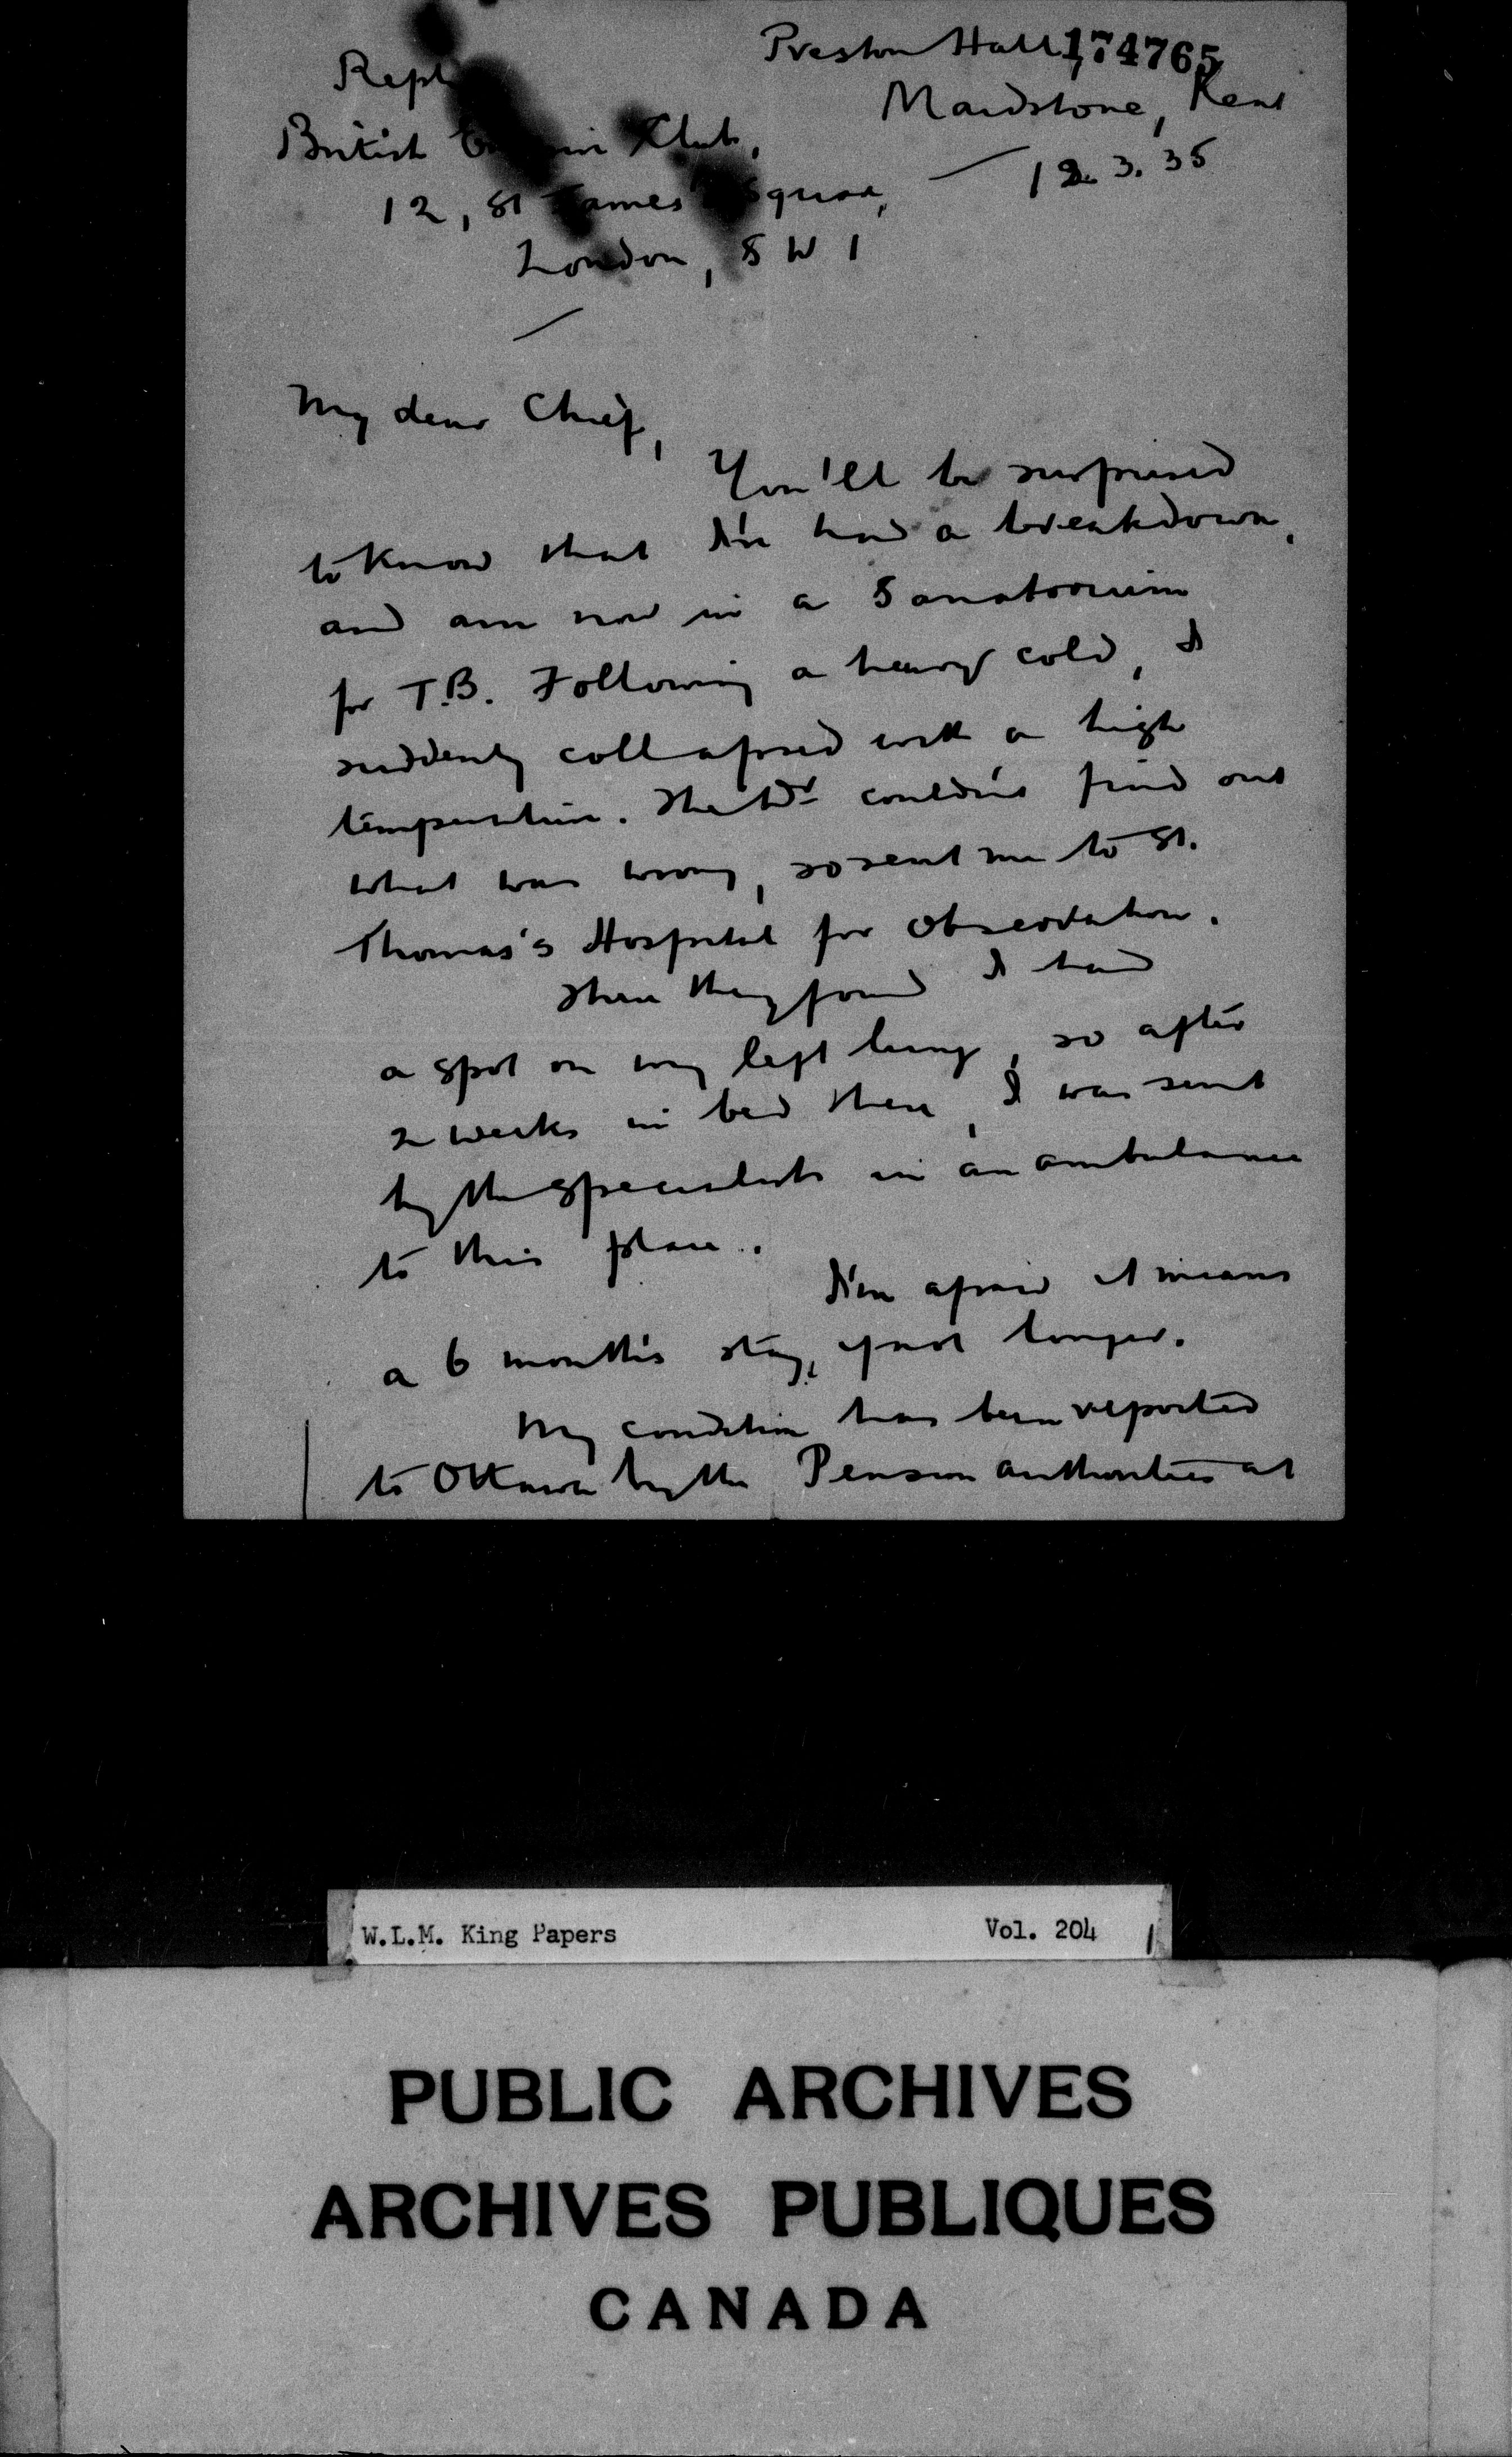 Preston Hall, 174765
Maidstone, Kent
12.3.35
Repl
British Club,
12, St James' Square,
London, S W 1
My dear Chief,
You'll be surprised
to know that I've had a breakdown,
and am now in a Sanatorium
for T.B. Following a heavy cold, I
suddenly collapsed with a high
temperature. The Dr couldn't find out
what was wrong, so sent me to St.
Thomas's Hospital for observation.
There they found I had
a spot on my left lung, so after
2 weeks in bed there, I was sent
by the specialists in an ambulance
to this place.
I'm afraid it means
a 6 month's stay, if not longer.
My condition has been reported
to Ottawa by the Pension authorities at
W.L.M. King Papers Vol. 204
PUBLIC ARCHIVES
ARCHIVES PUBLIQUES
CANADA